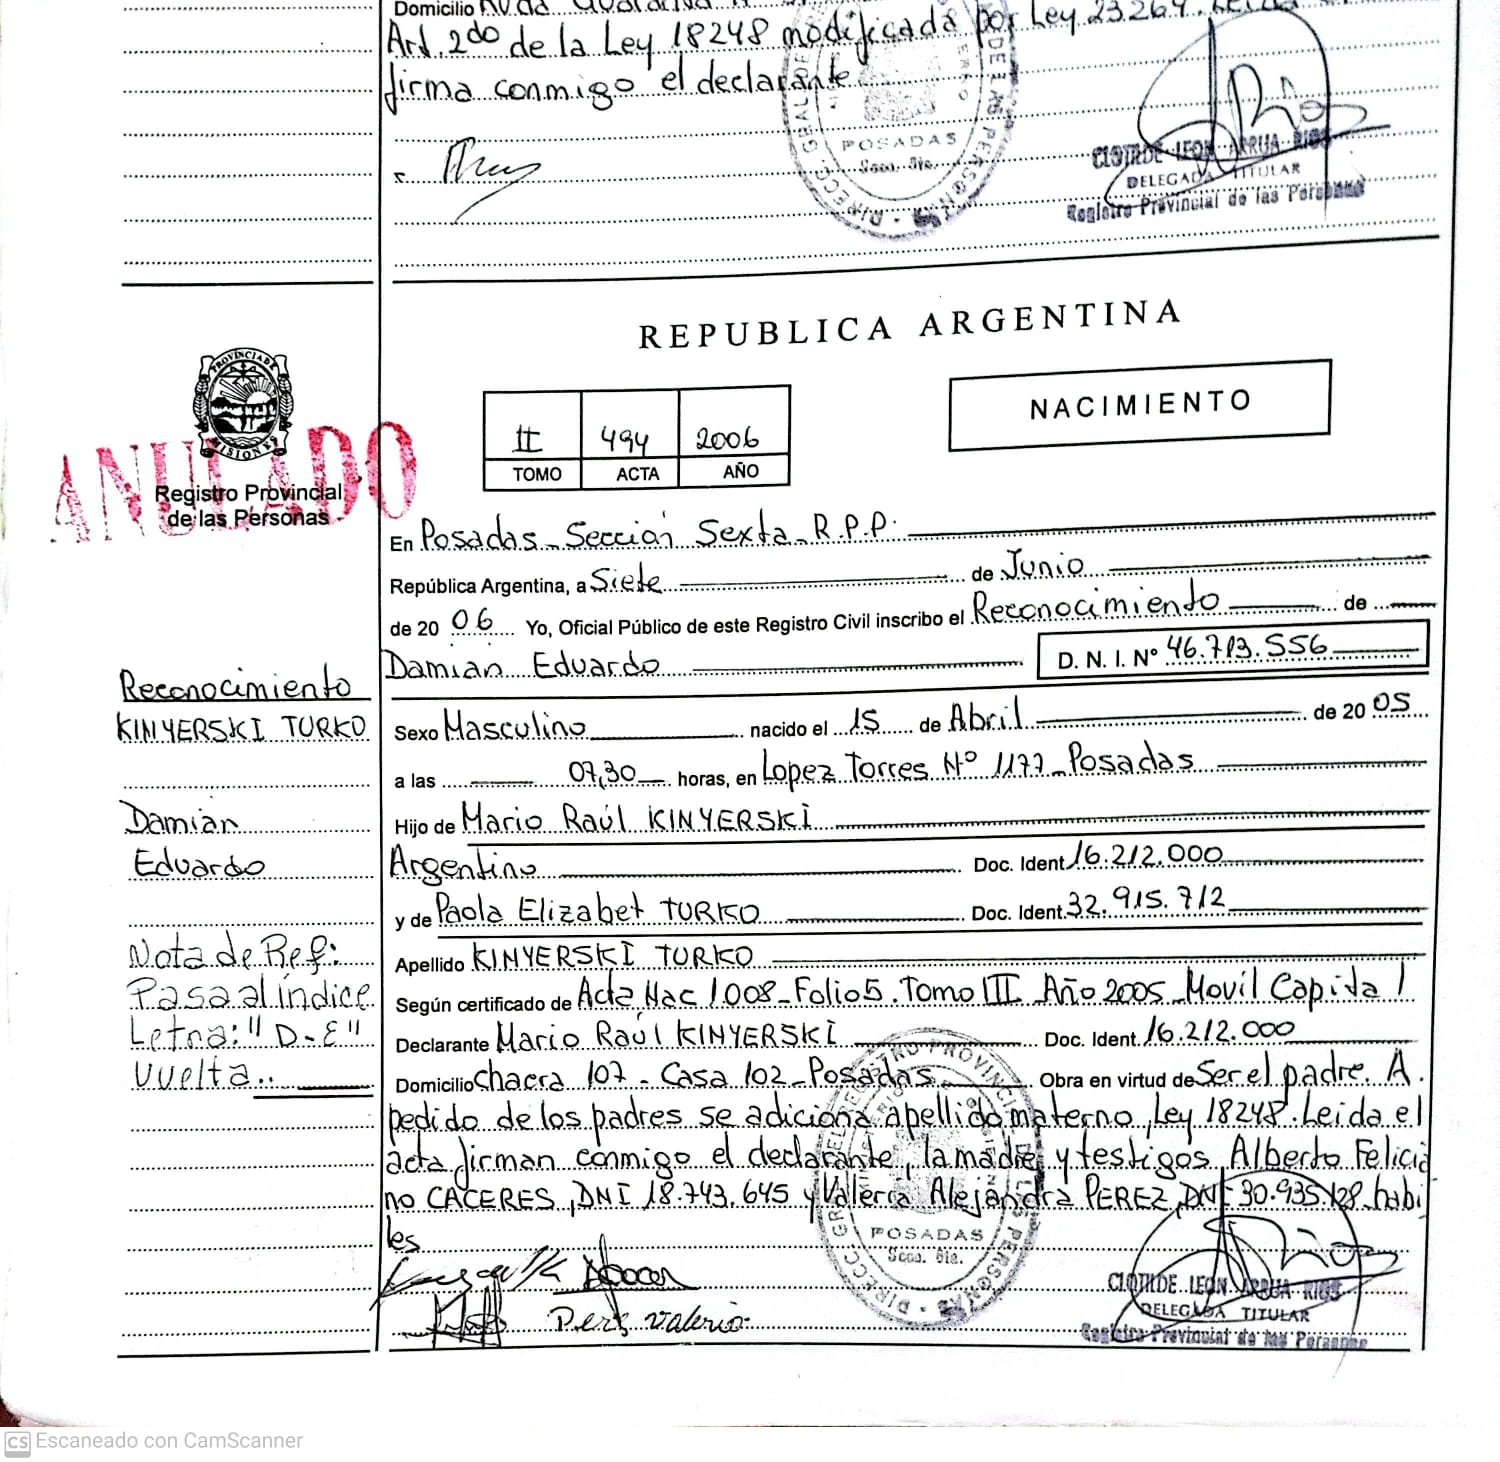 Domicilio Avda
Art. 2do de la Ley 18248 modificada por Ley 23264. Leida
firma conmigo el declarante
DIRECC. GRAL. DE
DE LAS PERSONAS
POSADAS
Secc. 6ta.
CLOTILDE LEON ARRUA RIOS
DELEGADA TITULAR
Registro Provincial de las Personas
REPUBLICA ARGENTINA
PROVINCIA DE
MISIONES
ANULADO
Registro Provincial
de las Personas
II 494 2006
TOMO ACTA AÑO
NACIMIENTO
En Posadas Sección Sexta R.P.P.
República Argentina, a Siete de Junio
de 20 06 Yo, Oficial Público de este Registro Civil inscribo el Reconocimiento de
Damián Eduardo D. N. I. Nº 46.713.556
Reconocimiento
KINYERSKI TURKO
Damián
Eduardo
Nota de Ref:
Pasa al índice
Letra: "D-E"
Vuelta..
Sexo Masculino nacido el 15 de Abril de 20 05
a las 07,30 horas, en Lopez Torres Nº 1177 Posadas
Hijo de Mario Raúl KINYERSKI
Argentino Doc. Ident 16.212.000
y de Paola Elizabet TURKO Doc. Ident. 32.915.712
Apellido KINYERSKI TURKO
Según certificado de Acta Nac 1008 Folio 5. Tomo III Año 2005 Movil Capital
Declarante Mario Raúl KINYERSKI Doc. Ident. 16.212.000
Domicilio chacra 107 - Casa 102 Posadas Obra en virtud de Ser el padre. A
pedido de los padres se adiciona apellido materno, Ley 18248. Leida el
acta firman conmigo el declarante, la madre y testigos Alberto Felicia
no CACERES, DNI 18.743.645 y Valeria Alejandra PEREZ, DNI 30.935.128 habi
les
POSADAS
Secc. 6ta.
Perez Valeria
CLOTILDE LEON ARRUA RIOS
DELEGADA TITULAR
Registro Provincial de las Personas
CS Escaneado con CamScanner